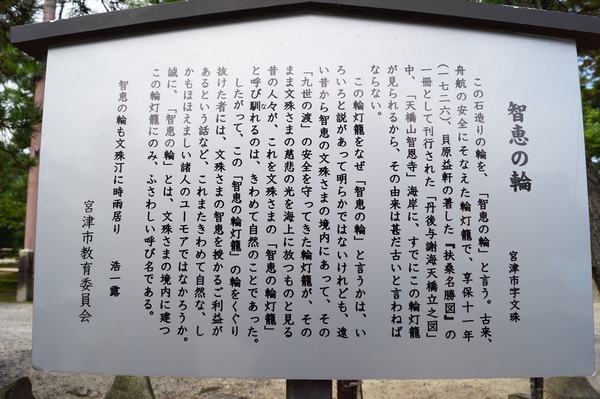 智恵の輪
宮津市字文珠
この石造りの輪を、「智恵の輪」と言う。古来、
舟航の安全にそなえた輪灯籠で、享保十一年
(一七二六)、貝原益軒の著した『扶桑名勝図』の
一冊として刊行された「丹後与謝海天橋立之図」
中、「天橋山智恩寺」海岸に、すでにこの輪灯籠
が見られるから、その由来は甚だ古いと言わねば
ならない。
この輪灯籠をなぜ「智恵の輪」と言うかは、い
ろいろと説があって明らかではないけれども、遠
い昔から智恵の文殊さまの境内にあって、その
「九世の渡」の安全を守ってきた輪灯籠が、その
まま文殊さまの慈悲の光を海上に放つものと見る
昔の人々が、これを文殊さまの「智恵の輪灯籠」
と呼び馴れるのは、きわめて自然のことであった。
したがって、この「智恵の輪灯籠」の輪をくぐり
抜けた者には、文殊さまの智恵を授かるご利益が
あるという話など、これまたきわめて自然な、し
かもほほえましい諸人のユーモアではなかろうか。
誠に、「智恵の輪」とは、文殊さまの境内に建つ
この輪灯籠にのみ、ふさわしい呼び名である。
智恵の輪も文殊汀に時雨居り　浩一露
宮津市教育委員会